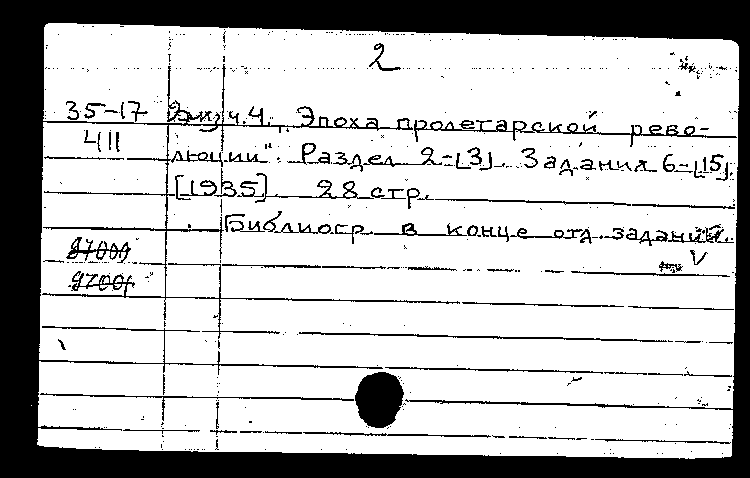 2
35-17 ч. 4. "Эпоха пролетарской рево-
411 люции". Раздел 2-[3]. Задания 6-[15].
[1935]. 28 стр.
Библиогр. в конце отд. заданий.
97000
97001
V